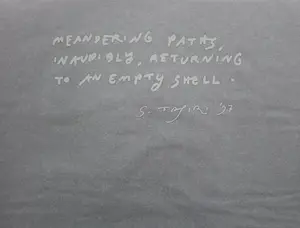 MEANDERING PATHS,
INAUDIBLY, RETURNING
TO AN EMPTY SHELL.
S. '97